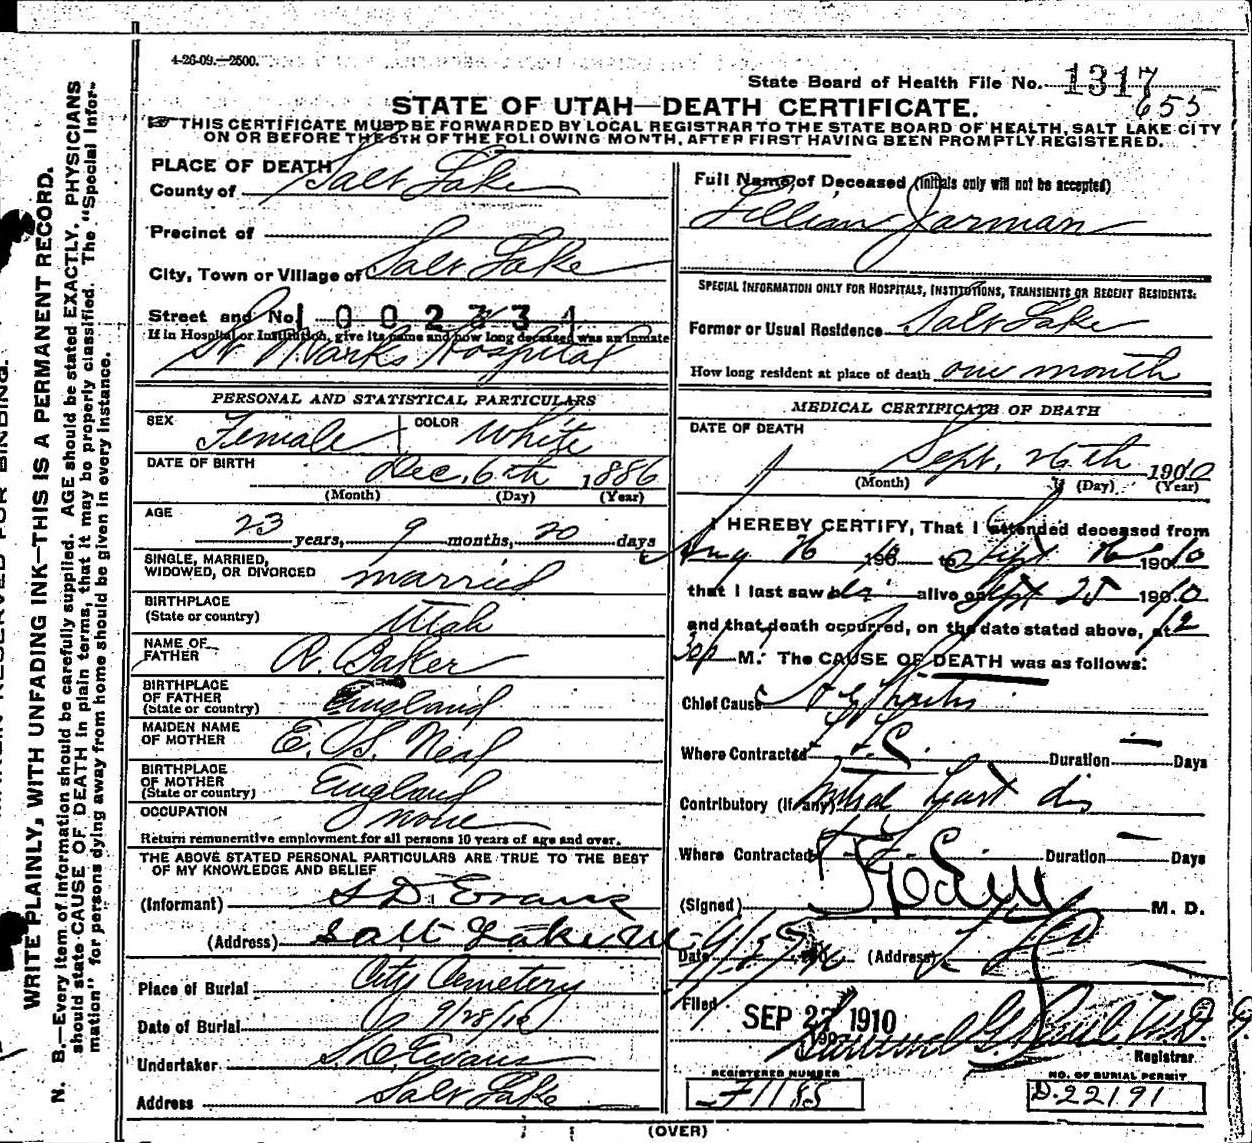 4-26-09.—2500.
State Board of Health File No. 1317
655
STATE OF UTAH—DEATH CERTIFICATE.
THIS CERTIFICATE MUST BE FORWARDED BY LOCAL REGISTRAR TO THE STATE BOARD OF HEALTH, SALT LAKE CITY
ON OR BEFORE THE 5TH OF THE FOLLOWING MONTH, AFTER FIRST HAVING BEEN PROMPTLY REGISTERED.
PLACE OF DEATH
County of Salt Lake
Precinct of
City, Town or Village of Salt Lake
Street and No. 1002334
If in Hospital or Institution, give its name and how long deceased was an inmate
St Marks Hospital
PERSONAL AND STATISTICAL PARTICULARS
SEX Female COLOR White
DATE OF BIRTH Dec. 6th 1886
(Month) (Day) (Year)
AGE
23 years, 9 months, 20 days
SINGLE, MARRIED,
WIDOWED, OR DIVORCED married
BIRTHPLACE
(State or country) Utah
NAME OF
FATHER R. Baker
BIRTHPLACE
OF FATHER
(State or country) England
MAIDEN NAME
OF MOTHER E. S. Neal
BIRTHPLACE
OF MOTHER
(State or country) England
OCCUPATION none
Return remunerative employment for all persons 10 years of age and over.
THE ABOVE STATED PERSONAL PARTICULARS ARE TRUE TO THE BEST
OF MY KNOWLEDGE AND BELIEF
(Informant) S D Evans
(Address) Salt Lake
Place of Burial City Cemetery
Date of Burial 9/28/10
Undertaker S. D. Evans
Address Salt Lake
Full Name of Deceased (Initials only will not be accepted)
Lillian Jarman
SPECIAL INFORMATION ONLY FOR HOSPITALS, INSTITUTIONS, TRANSIENTS OR RECENT RESIDENTS.
Former or Usual Residence Salt Lake
How long resident at place of death one month
MEDICAL CERTIFICATE OF DEATH
DATE OF DEATH
Sept. 26th 1910
(Month) (Day) (Year)
I HEREBY CERTIFY, That I attended deceased from
Aug 26 1910 to Sept 26 1910
that I last saw her alive on Sept 25 1910
and that death occurred, on the date stated above, at 12
30 p M. The CAUSE OF DEATH was as follows:
Chief Cause
Where Contracted Duration — Days
Contributory (If any) Mitral heart dis
Where Contracted Duration — Days
(Signed) M. D.
Date (Address)
Filed SEP 27 1910
Registrar
REGISTERED NUMBER
F1185
NO. OF BURIAL PERMIT
D.22191
(OVER)
WRITE PLAINLY, WITH UNFADING INK—THIS IS A PERMANENT RECORD.
N. B.—Every item of information should be carefully supplied. AGE should be stated EXACTLY. PHYSICIANS
should state CAUSE OF DEATH in plain terms, that it may be properly classified. The "Special Infor-
mation" for persons dying away from home should be given in every instance.